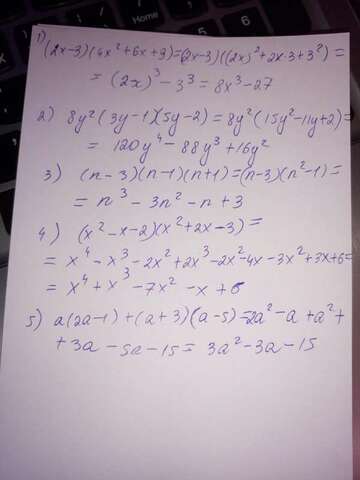 1) (2x-3)(4x²+6x+9)=(2x-3)((2x)²+2x·3+3²)=
= (2x)³-3³=8x³-27
2) 8y²(3y-1)(5y-2)=8y²(15y²-11y+2)=
= 120y⁴-88y³+16y²
3) (n-3)(n-1)(n+1)=(n-3)(n²-1)=
= n³-3n²-n+3
4) (x²-x-2)(x²+2x-3)=
= x⁴-x³-2x²+2x³-2x²-4x-3x²+3x+6=
= x⁴+x³-7x²-x+6
5) a(2a-1)+(a+3)(a-5)=2a²-a+a²+
+3a-5a-15=3a²-3a-15